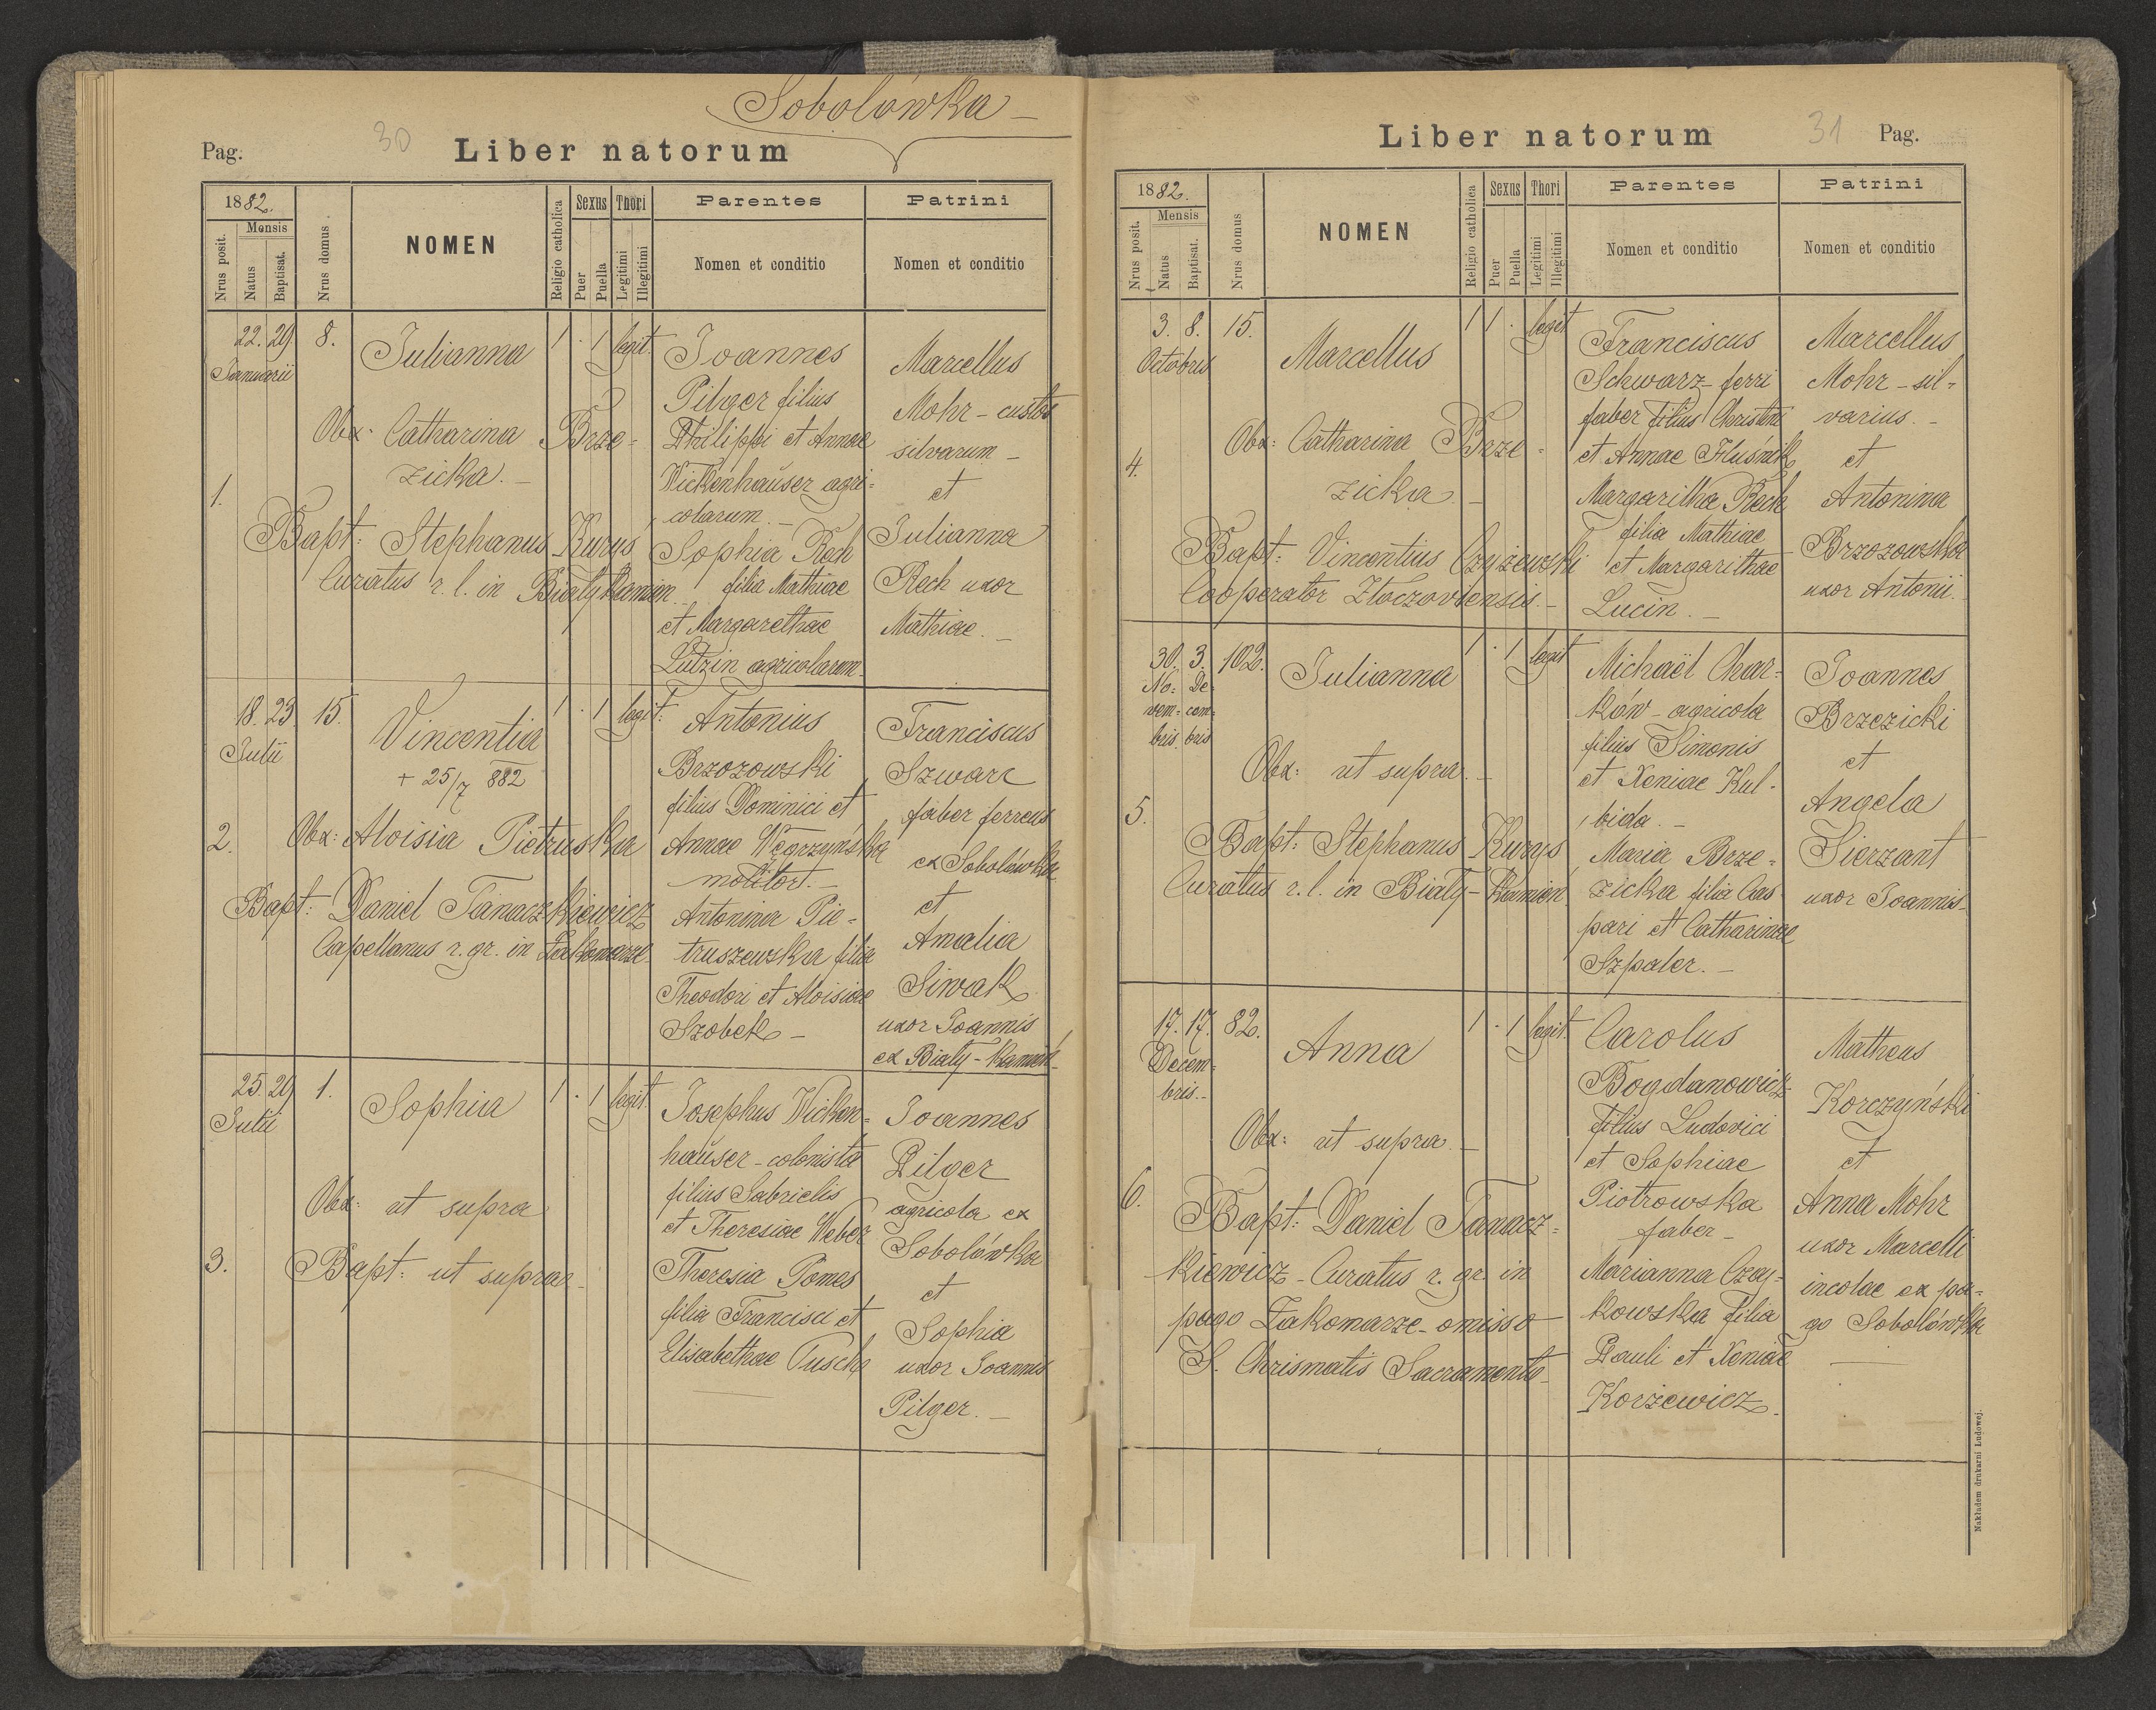 Sobolówka
Pag. 30 Liber natorum
1882.
Nrus posit. Mensis Natus Baptisat. Nrus domus NOMEN Religio catholica Sexus Puer Puella Thori Legitimi Illegitimi Parentes Nomen et conditio Patrini Nomen et conditio
1.
22. 29. 8.
Januarii
Julianna
1 · 1 legit.
Obx: Catharina Brze=
zicka. –
Bapt: Stephanus Kuryś
Curatus r. l. in Białykamien
Joannes
Pilger filius
Philippi et Annae
Wickenhaŭser agri=
colarum. –
Sophia Rech
filia Mathiae
et Margarethae
Lutzin agricolarum.
Marcellus
Mohr – custos
silvarum –
et
Julianna
Rech uxor
Mathiae. –
2.
18. 23. 15.
Julii
Vincentia
+ 25/7 882
1 · 1 legit:
Obx: Aloisia Pietruska
Bapt: Daniel Tanaczkiewicz
Capellanus r. gr. in Zakomarze
Antonius
Brzozowski
filius Dominici et
Annae Węgrzyńska
molitor. –
Antonina Pie=
truszewska filia
Theodori et Aloisiae
Szobek –
Franciscus
Szwarc
faber ferreus
ex Sobolówka
et
Amalia
Siwak
uxor Joannis
ex Biały – Kamień
3.
25. 29. 1.
Julii
Sophia
1 · 1 legit.
Obx: ut supra
Bapt: ut supra
Josephus Wicken=
haŭser – colonista
filius Gabrielis
et Theresiae Weber
Theresia Pomes
filia Francisci et
Elisabethae Tusch
Joannes
Pilger
agricola ex
Sobolówka
et
Sophia
uxor Joannis
Pilger. –
Liber natorum 31 Pag.
1882.
Nrus posit. Mensis Natus Baptisat. Nrus domus NOMEN Religio catholica Sexus Puer Puella Thori Legitimi Illegitimi Parentes Nomen et conditio Patrini Nomen et conditio
4.
3. 8. 15.
Octobris
Marcellus
1 1 · legit
Obx: Catharina Brze=
zicka –
Bapt: Vincentius Czyżewski
Cooperator Złoczoviensis. –
Franciscus
Schwarz – ferri
faber filius Christiani
et Annae
Margaritha Rech
filia Mathiae
et Margarithae
Lucin. –
Marcellus
Mohr – sil=
varius. –
et
Antonina
Brzozowska
uxor Antonii.
5.
30. 3. 102.
No= De=
vem= cem=
bris. bris
Julianna
1 · 1 legit
Obx: ut supra. –
Bapt: Stephanus Kuryś
Curatus r. l. in Biały – Kamień
Michaël Char=
ków – agricola
filius Simonis
et Xeniae Kul=
bida. –
Maria Brze=
zicka filia Cas=
pari et Catharinae
Szpaler. –
Joannes
Brzezicki
et
Angela
Sierzant
uxor Joannis –
6.
17. 17. 82.
Decem=
bris. –
Anna
1 · 1 legit.
Obx: ut supra. –
Bapt: Daniel Tanacz=
kiewicz – Curatus r. gr. in
pago Zakomarze – omisso
S. Chrismatis Sacramento –
Carolus
Bogdanowicz
filius Ludovici
et Sophiae
Piotrowska
faber –
Marianna Czaj=
kowska filia
Pauli et Xeniae
Korżewicz.
Matheus
Korczyński
et
Anna Mohr
uxor Marcelli
incolae ex pa=
go Sobolówka
–
Nakładem drukarni Ludowej.